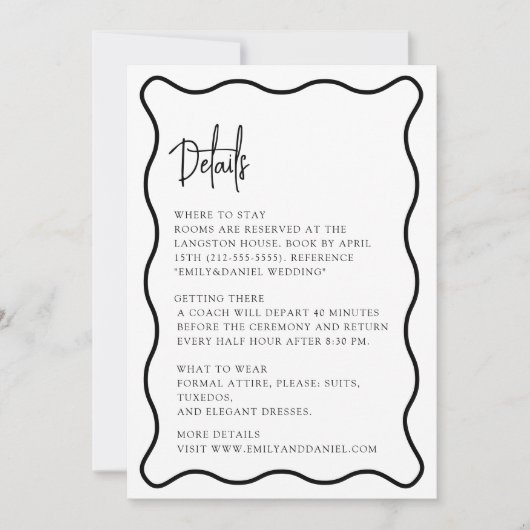 Details
WHERE TO STAY
ROOMS ARE RESERVED AT THE
LANGSTON HOUSE. BOOK BY APRIL
15TH (212-555-5555). REFERENCE
"EMILY&DANIEL WEDDING"
GETTING THERE
A COACH WILL DEPART 40 MINUTES
BEFORE THE CEREMONY AND RETURN
EVERY HALF HOUR AFTER 8:30 PM.
WHAT TO WEAR
FORMAL ATTIRE, PLEASE: SUITS,
TUXEDOS,
AND ELEGANT DRESSES.
MORE DETAILS
VISIT WWW.EMILYANDDANIEL.COM